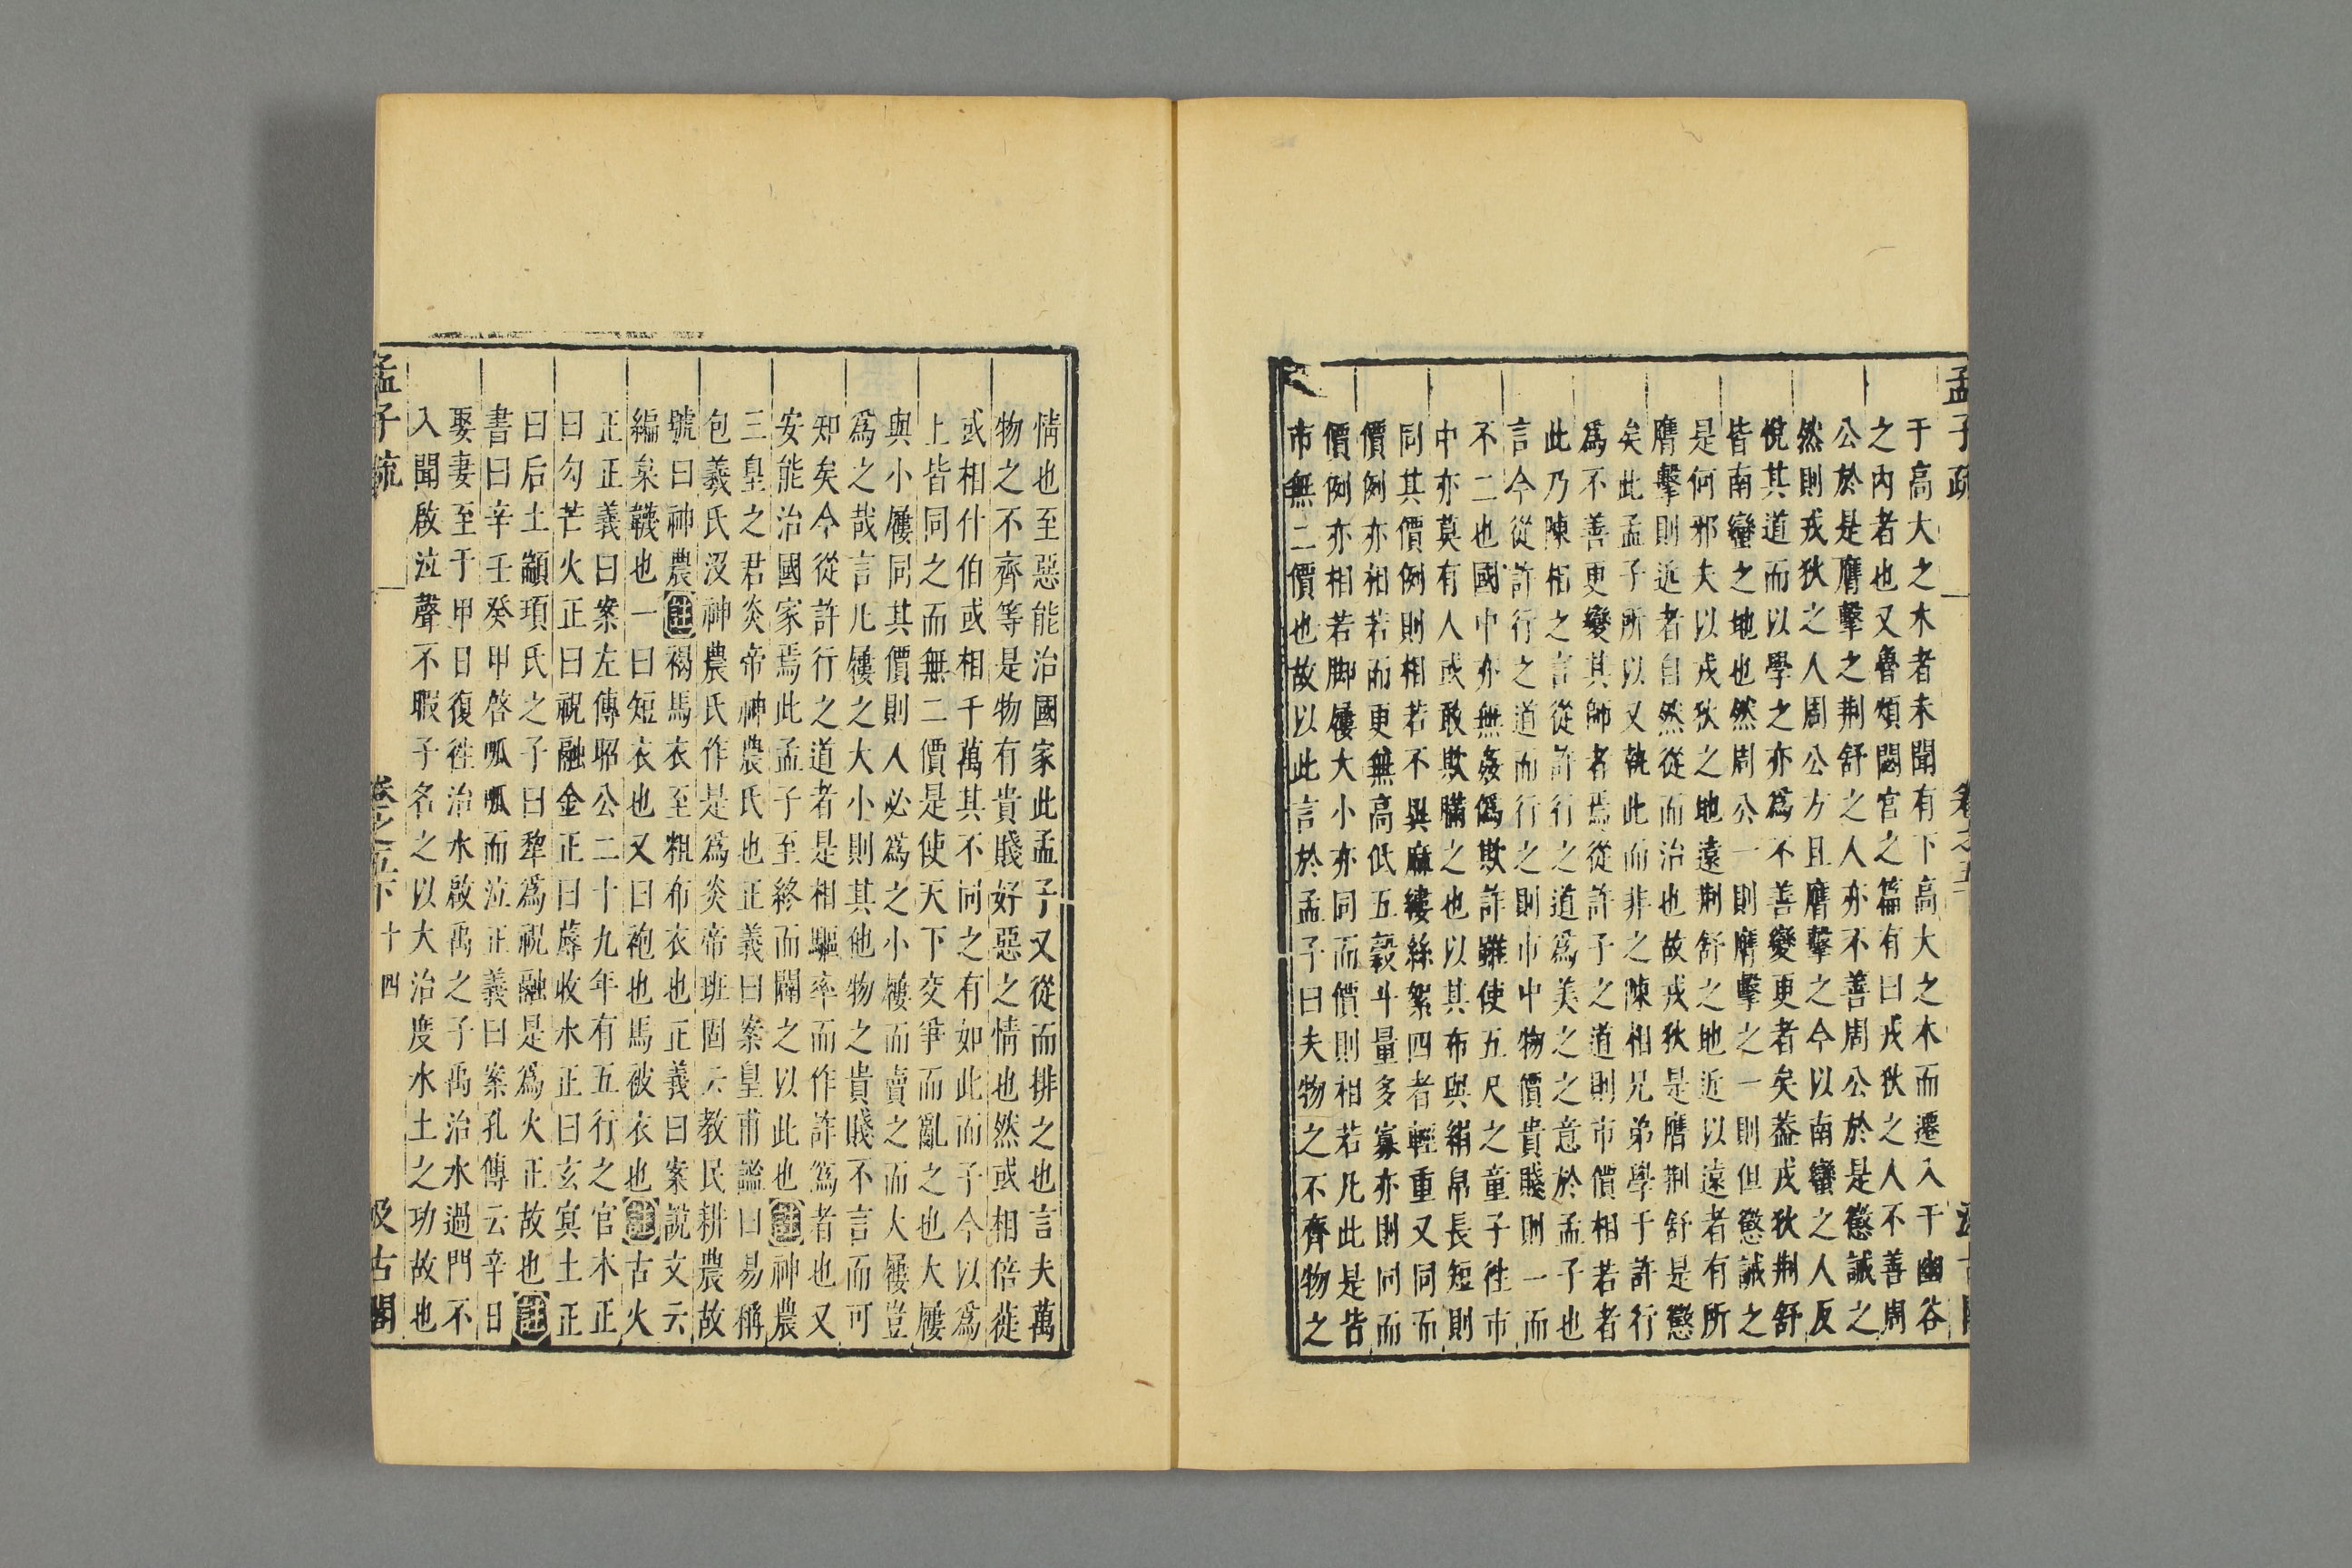 孟子疏
卷之五
于高大之木者未聞有下高大之木而遷入于幽谷
之內者也又魯頌閟宮之篇有曰戎狄之人不善周
公於是膺擊之荆舒之人亦不善周公於是懲誡之
然則戎狄之人周公方且膺擊之今以南蠻之人反
悅其道而以學之亦爲不善變更者矣葢戎狄荆舒
皆南蠻之地也然周公一則膺擊之一則但懲誡之
是何邪夫以戎狄之地遠荆舒之地近以遠者有所
膺擊則近者自然從而治也故戎狄是膺荆舒是懲
矣此孟子所以又執此而非之陳相兄弟學于許行
爲不善更變其師者焉從許子之道則市價相若者
此乃陳相之言從許行之道爲美之之意於孟子也
言今從許行之道而行之則市中物價貴賤則一而
不二也國中亦無姦僞欺詐雖使五尺之童子徃市
中亦莫有人或敢欺瞞之也以其布與絹帛長短則
同其價例則相若不與麻縷絲絮四者輕重又同而
價例亦相若而更無高低五穀斗量多寡亦則同而
價例亦相若脚屨大小亦同而價則相若凡此是皆
市無二價也故以此言於孟子孟子曰夫物之不齊物之
情也至惡能治國家此孟子又從而排之也言夫萬
物之不齊等是物有貴賤好惡之情也然或相倍蓰
或相什伯或相千萬其不同之有如此而子今以爲
上皆同之而無二價是使天下交爭而亂之也大屨
與小屨同其價則人必爲之小屨而賣之而大屨豈
爲之哉言凡屨之大小則其他物之貴賤不言而可
知矣今從許行之道者是相驅率而作詐僞者也又
安能治國家焉此孟子至終而闢之以此也註神農
三皇之君炎帝神農氏也正義曰案皇甫謐曰易稱
包羲氏沒神農氏作是爲炎帝班固云教民耕農故
號曰神農註褐馬衣至粗布衣也正義曰案說文云
編枲韈也一曰短衣也又曰袍也馬被衣也註古火
正正義曰案左傳昭公二十九年有五行之官木正
曰勾芒火正曰祝融金正曰蓐收水正曰玄冥土正
曰后土顓頊氏之子曰犂爲祝融是爲火正故也註
書曰辛壬癸甲啓呱呱而泣正義曰案孔傳云辛日
娶妻至于甲日復徃治水啟禹之子禹治水過門不
入聞啟泣聲不暇子名之以大治度水土之功故也
孟子疏
卷之五下
十四
汲古閣